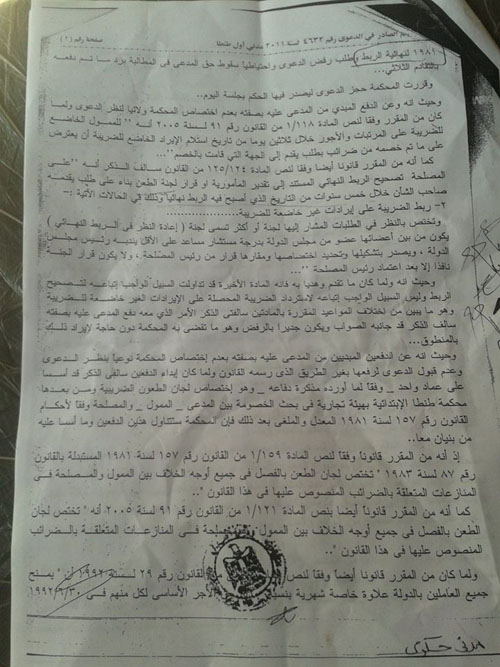 الصادر في الدعوى رقم ٤٦٣٣ لسنة ٢٠١١ مدنى أول طنطا صفحة رقم (٤)
١٩٨١ لنهائية الربط وطلب رفض الدعوى واحتياطيا سقوط حق المدعى فى المطالبة برد ما تم دفعه
بالتقادم الثلاثي...
وقررت المحكمة حجز الدعوى ليصدر فيها الحكم بجلسة اليوم..
وحيث انه وعن الدفع المبدي من المدعى عليه بصفته بعدم اختصاص المحكمة ولائيا لنظر الدعوى ولما
كان من المقرر وفقا لنص المادة ١/١١٨ من القانون رقم ٩١ لسنة ٢٠٠٥ أنه " للممول الخاضع
للضريبة على المرتبات والأجور خلال ثلاثين يوما من تاريخ استلام الإيراد الخاضع للضريبة أن يعترض
على ما تم خصمه من ضرائب بطلب يقدم إلى الجهة التي قامت بالخصم"...
كما أنه من المقرر قانونا أيضا وفقا لنص المادة ١٢٥/١٢٤ من القانون سالف الذكر أنه " على
المصلحة تصحيح الربط النهائي المستند إلى تقدير المأمورية أو قرار لجنة الطعن بناء على طلب يقدمه
صاحب الشأن خلال خمس سنوات من التاريخ الذي أصبح فيه الربط نهائيا وذلك في الحالات الأتية :-
٢- ربط الضريبة على إيرادات غير خاضعة للضريبة........
وتختص بالنظر في الطلبات المشار إليها لجنة أو أكثر تسمى لجنة ( إعادة النظر في الربط النهائي )
يكون من بين أعضائها عضو من مجلس الدولة بدرجة مستشار مساعد على الأقل يندبه رئيس مجلس
الدولة ، ويصدر بتشكيلها وتحديد اختصاصها ومقارها قرار من رئيس المصلحة ، ولا يكون قرار اللجنة
نافذا إلا بعد اعتماد رئيس المصلحة "...
وحيث انه ولما كان ما تقدم وهديا به فإنه المادة الأخيرة قد تداولت السبيل الواجب إتباعه لتصحيح
الربط وليس السبيل الواجب إتباعه لاسترداد الضريبة المحصلة على الإيرادات الغير خاضعة للضريبة
وهو ما يبين من اختلاف المواعيد المقررة بالمادتين سالفتى الذكر الأمر الذي معه دفع المدعى عليه بصفته
سالف الذكر قد جانبه الصواب ويكون جديرا بالرفض وهو ما تقضى به المحكمة دون حاجة لإيراد ذلك
بالمنطوق...
وحيث انه عن الدفعين المبديين من المدعى عليه بصفته بعدم إختصاص المحكمة نوعيا بنظر الدعوى
وعدم قبول الدعوى لرفعها بغير الطريق الذي رسمه القانون ولما كان إيداء الدفعين سالفى الذكر قد أسسا
على عماد واحد _ وفقا لما أورده مذكرة دفاعه _ وهو إختصاص لجان الطعون الضريبية ومن بعدها
محكمة طنطا الإبتدائية بهيئة تجارية فى بحث الخصومة بين المدعى _ الممول _ والمصلحة وفقا لأحكام
القانون رقم ١٥٧ لسنة ١٩٨١ المعدل والملغى بعد ذلك فإن المحكمة ستتناول هذين الدفعين وما أسسا عليه
من بنيان معا...
إذ أنه من المقرر قانونا وفقا لنص المادة ١/١٥٩ من القانون رقم ١٥٧ لسنة ١٩٨١ المستبدلة بالقانون
رقم ٨٧ لسنة ١٩٨٣ " تختص لجان الطعن بالفصل فى جميع أوجه الخلاف بين الممول والمصلحة فى
المنازعات المتعلقة بالضرائب المنصوص عليها فى هذا القانون "..
كما أنه من المقرر قانونا أيضا بنص المادة ١/١٢١ من القانون رقم ٩١ لسنة ٢٠٠٥ أنه " تختص لجان
الطعن بالفصل فى جميع أوجه الخلاف بين الممول والمصلحة فى المنازعات المتعلقة بالضرائب
المنصوص عليها فى هذا القانون "..
ولما كان من المقرر قانونا أيضا وفقا لنص القانون رقم ٢٩ لسنة ١٩٩٢ أن " يمنح
جميع العاملين بالدولة علاوة خاصة شهرية بنسبة الأجر الأساسى لكل منهم فى ١٩٩٢/٦/٣٠